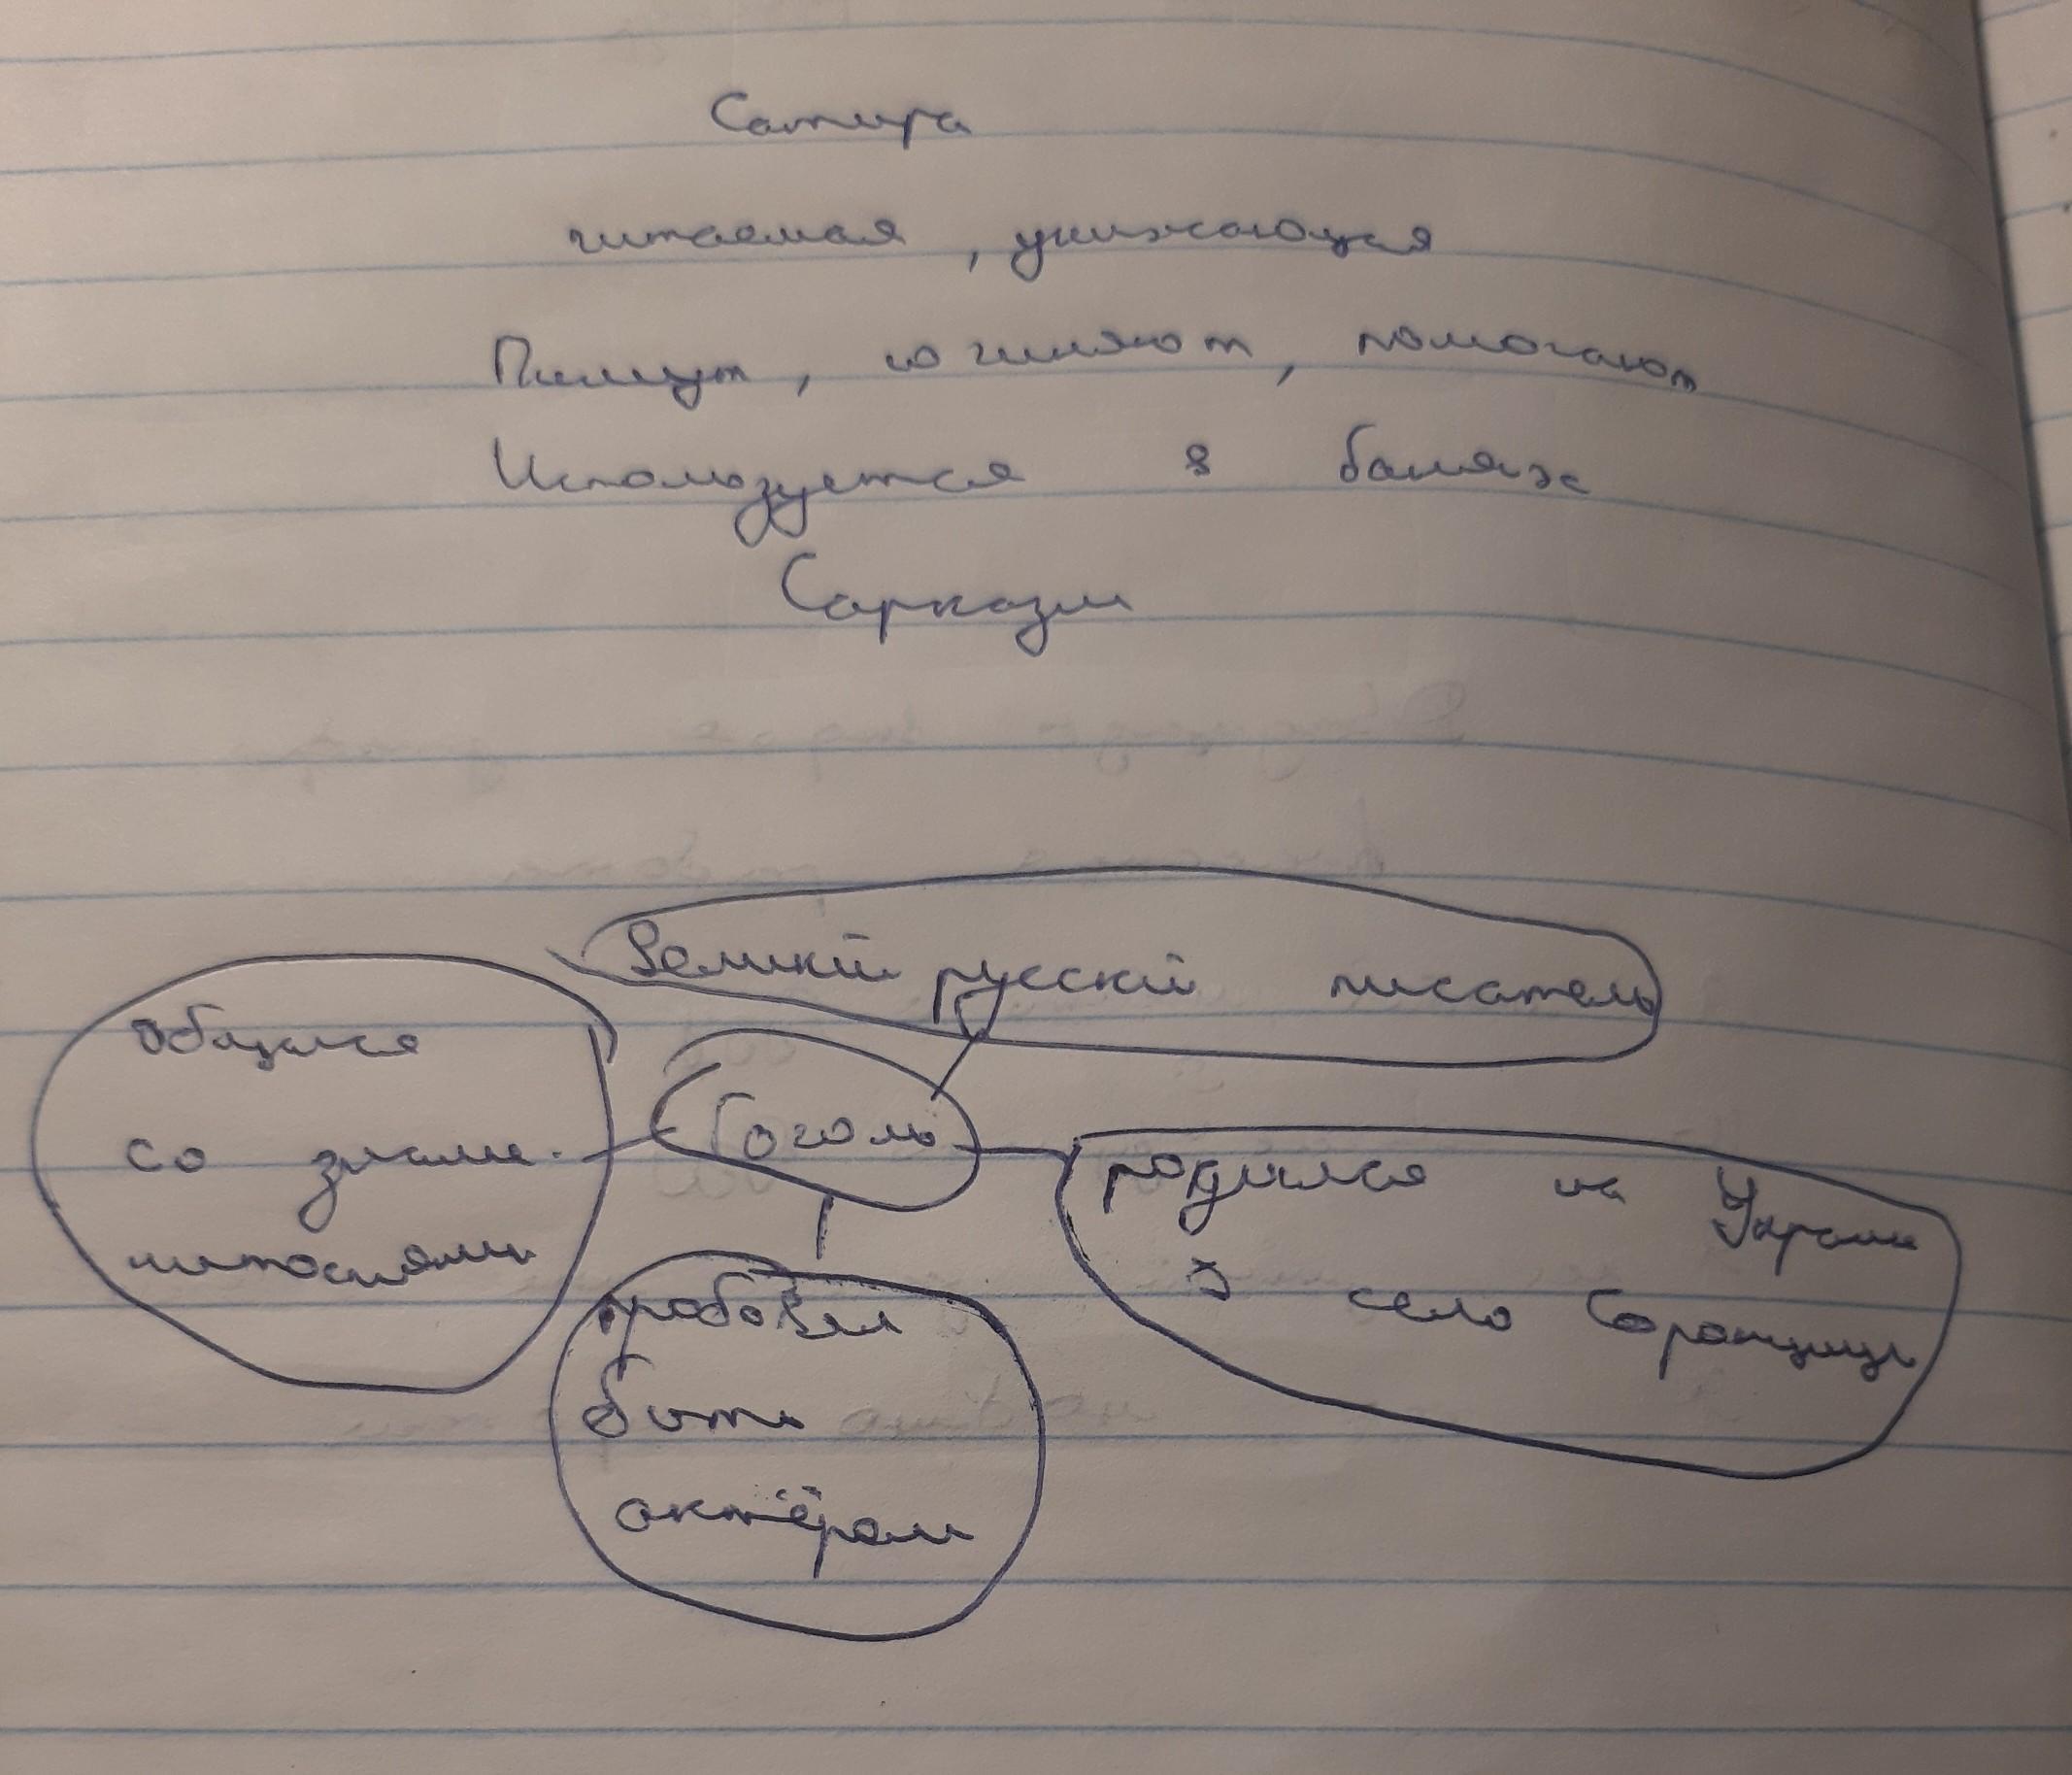 Сатира
читаемая, унижающая
Пишут, сочиняют, помогают
Используется в баснях
Сарказм
Великий русский писатель
Общался
со знаме-
нитостями
Гоголь
родился на Украине
в село Сорочинцы
пробовал
быть
актёром